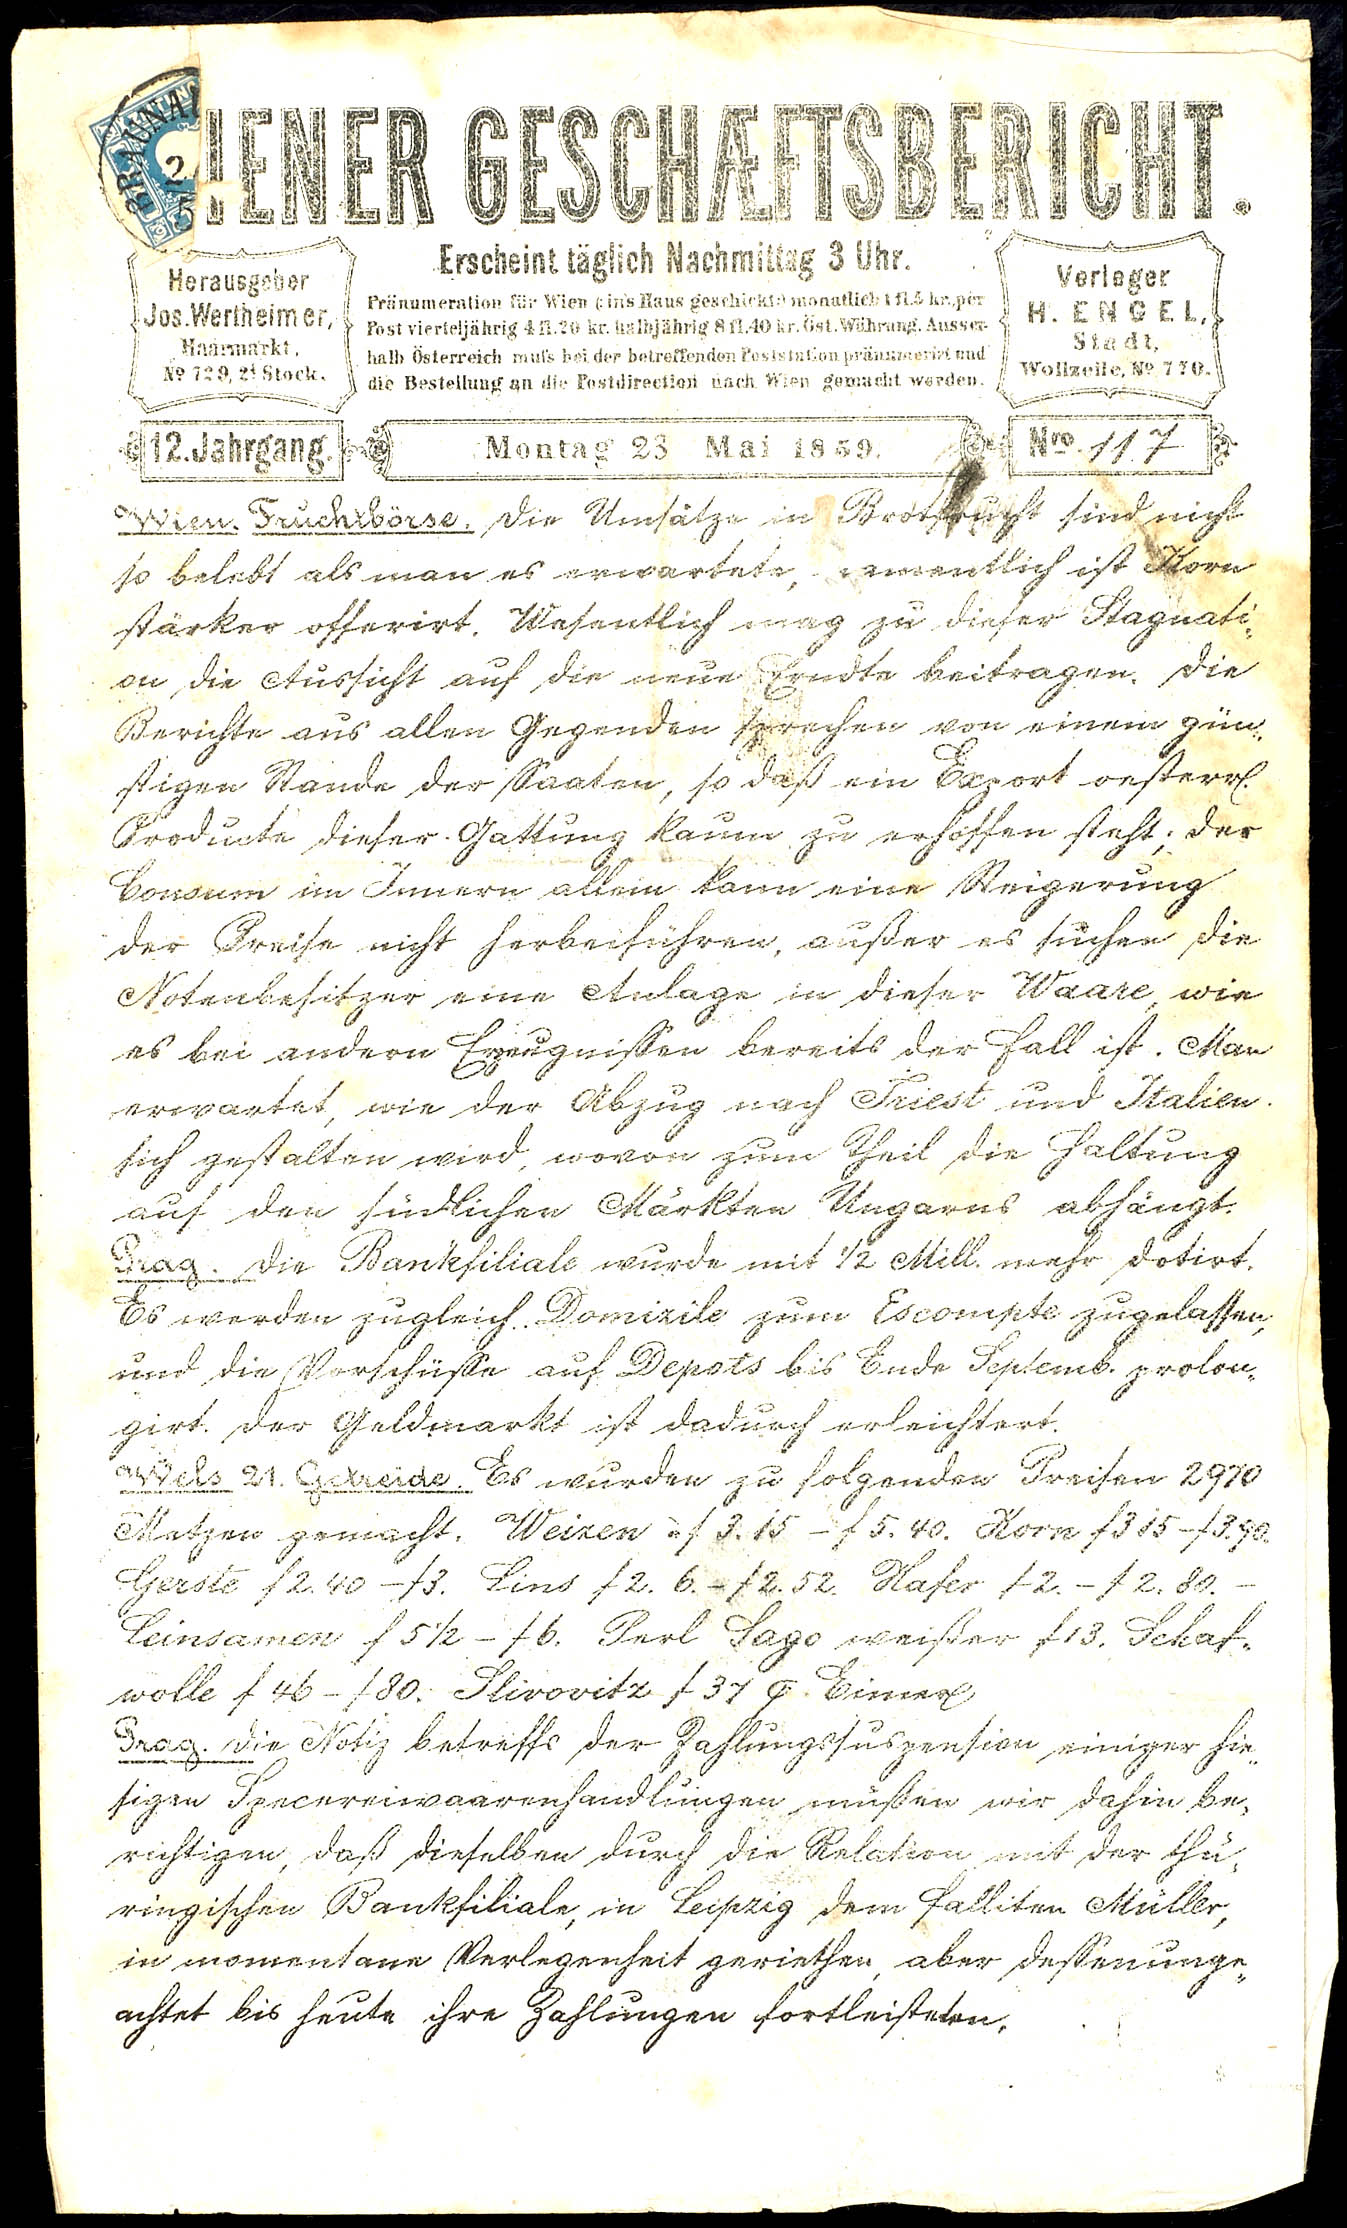 BRAUNAU
2
IENER GESCHÆFTSBERICHT.
Erscheint täglich Nachmittag 3 Uhr.
Herausgeber
Jos. Wertheimer,
Haarmarkt,
No 729, 2t Stock.
Pränumeration für Wien (ins Haus geschickt) monatlich 1 fl. 5 kr. per
Post vierteljährig 4 fl. 20 kr. halbjährig 8 fl. 40 kr. Öst. Währung. Ausser-
halb Österreich muſs bei der betreffenden Poststation pränumerirt und
die Bestellung an die Postdirection nach Wien gemacht werden.
Verleger
H. ENGEL,
Stadt,
Wollzeile, No 770.
12. Jahrgang.
Montag 23 Mai 1859.
Nro. 117
Wien. Fruchtbörse. Die Umsätze in Brotfrucht sind nicht
so belebt als man es erwartete, namentlich ist Korn
stärker offerirt. Wesentlich mag zu dieser Stagnati-
on die Aussicht auf die neue Erndte beitragen. Die
Berichte aus allen Gegenden sprechen von einem gün-
stigen Stande der Saaten, so daß ein Export oesterr.
Producte dieser Gattung kaum zu erhoffen steht; der
Consum im Innern allein kann eine Steigerung
der Preise nicht herbeiführen, außer es suchen die
Notenbesitzer eine Anlage in dieser Waare, wie
es bei andern Erzeugnissen bereits der Fall ist. Man
erwartet, wie der Abzug nach Triest und Italien
sich gestalten wird, wovon zum Theil die Haltung
auf den südlichen Märkten Ungarns abhängt.
Prag. Die Bankfiliale wurde mit 1/2 Mill. mehr dotirt.
Es werden zugleich Domizile zum Escompte zugelassen,
und die Vorschüsse auf Depots bis Ende Septemb. prolon-
girt. Der Geldmarkt ist dadurch erleichtert.
Wels 21. Getreide. Es wurden zu folgenden Preisen 2970
Metzen gemacht. Weizen à f 3.15 - f 5.40. Korn f 3 15 - f 3.90.
Gerste f 2.40 - f 3. Lins f 2.6. - f 2.52. Hafer f 2. - f 2.80. -
Leinsamen f 5 1/2 - f 6. Perl Sago weißer f 13. Schaf-
wolle f 46 - f 80. Slivovitz f 37 Eimer
Prag. Die Notiz betreffs der Zahlungssuspension einiger hie-
sigen Specereiwaarenhandlungen müßen wir dahin be-
richtigen, daß dieselben durch die Relation mit der thü-
ringischen Bankfiliale, in Leipzig dem falliten Müller,
in momentane Verlegenheit geriethen, aber dessenunge-
achtet bis heute ihre Zahlungen fortleisteten.